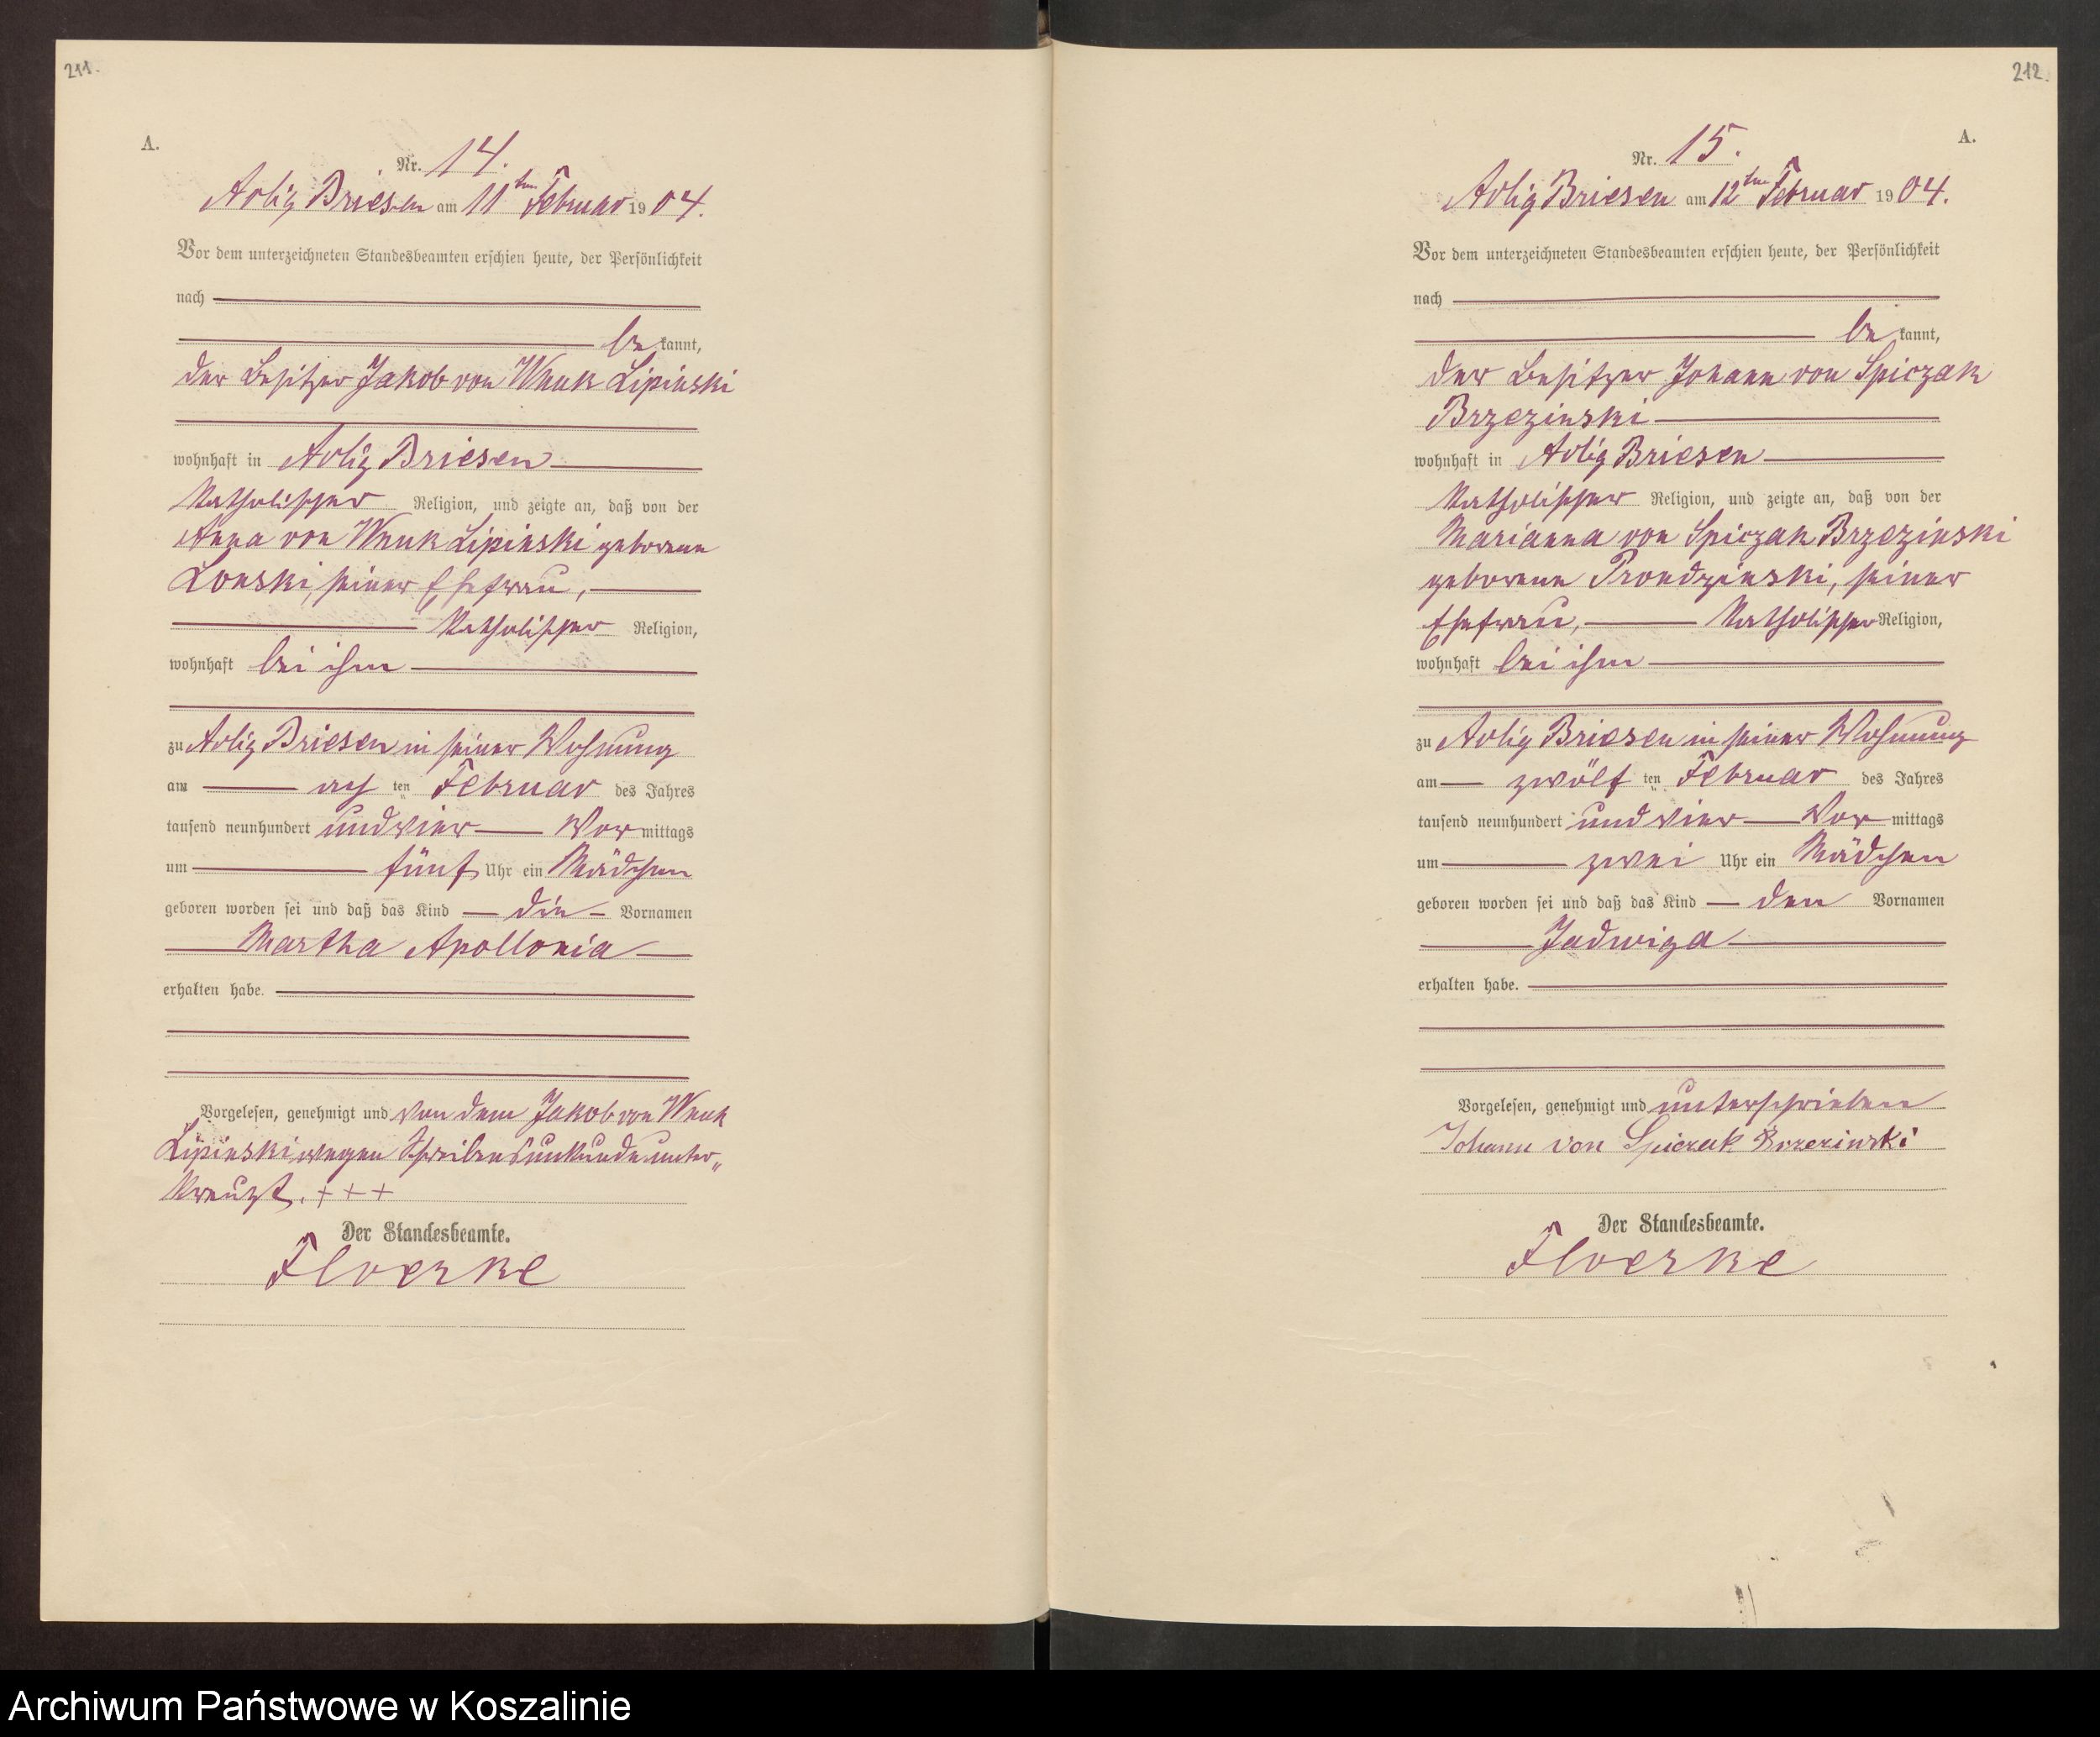 211.
A.
Nr. 14.
Adlig Briesen am 11ten Februar 1904.
Vor dem unterzeichneten Standesbeamten erschien heute, der Persönlichkeit
nach
be kannt,
der Besitzer Jakob von Wnuk Lipinski
wohnhaft in Adlig Briesen
katholischer Religion, und zeigte an, daß von der
Anna von Wnuk Lipinski geborene
Lonski, seiner Ehefrau,
katholischer Religion,
wohnhaft bei ihm
zu Adlig Briesen in seiner Wohnung
am ach ten Februar des Jahres
tausend neunhundert und vier Vor mittags
um fünf Uhr ein Mädchen
geboren worden sei und daß das Kind die Vornamen
Martha Apollonia
erhalten habe.
Vorgelesen, genehmigt und von dem Jakob von Wnuk
Lipinski wegen Schreibensunkunde unter„
kreuzt. +++
Der Standesbeamte.
Floerke
212.
A.
Nr. 15.
Adlig Briesen am 12ten Februar 1904.
Vor dem unterzeichneten Standesbeamten erschien heute, der Persönlichkeit
nach
be kannt,
der Besitzer Johann von Spiczak
Brzezinski
wohnhaft in Adlig Briesen
katholischer Religion, und zeigte an, daß von der
Marianna von Spiczak Brzezinski
geborene Prondzinski, seiner
Ehefrau, katholischer Religion,
wohnhaft bei ihm
zu Adlig Briesen in seiner Wohnung
am zwölf ten Februar des Jahres
tausend neunhundert und vier Vor mittags
um zwei Uhr ein Mädchen
geboren worden sei und daß das Kind den Vornamen
Jadwiga
erhalten habe.
Vorgelesen, genehmigt und unterschrieben
Johann von Spiczak Brzezinski
Der Standesbeamte.
Floerke
Archiwum Państwowe w Koszalinie